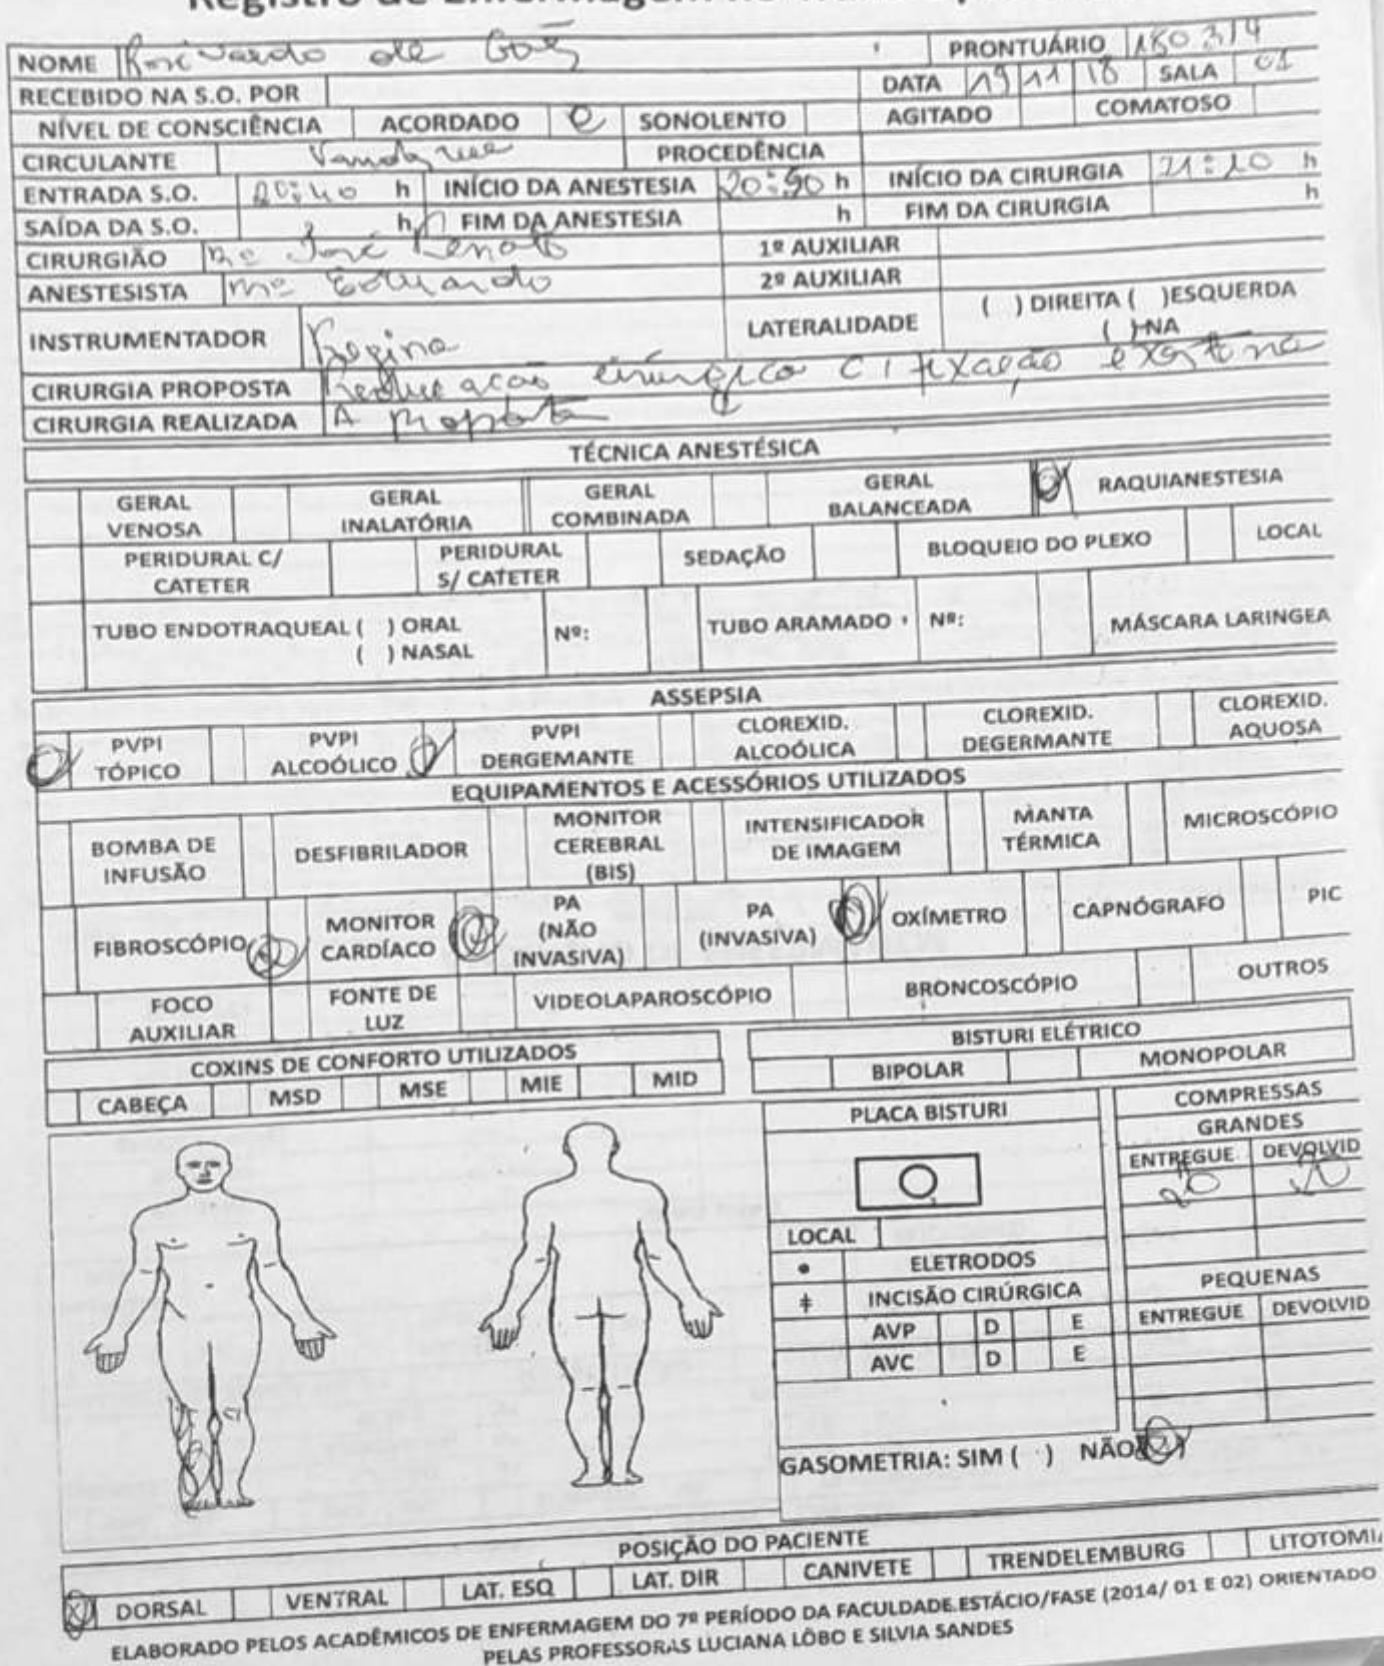 NOME de PRONTUÁRIO 180314
RECEBIDO NA S.O. POR DATA 19 11 18 SALA 01
NÍVEL DE CONSCIÊNCIA ACORDADO SONOLENTO AGITADO COMATOSO
CIRCULANTE PROCEDÊNCIA
ENTRADA S.O. 20:40 h INÍCIO DA ANESTESIA 20:50 h INÍCIO DA CIRURGIA 21:20 h
SAÍDA DA S.O. h FIM DA ANESTESIA h FIM DA CIRURGIA h
CIRURGIÃO José Renato 1º AUXILIAR
ANESTESISTA Eduardo 2º AUXILIAR
INSTRUMENTADOR Regina LATERALIDADE ( ) DIREITA ( )ESQUERDA
( )NA
CIRURGIA PROPOSTA cirúrgica C/ fixação externa
CIRURGIA REALIZADA A proposta
TÉCNICA ANESTÉSICA
GERAL VENOSA GERAL INALATÓRIA GERAL COMBINADA GERAL BALANCEADA RAQUIANESTESIA
PERIDURAL C/ CATETER PERIDURAL S/ CATETER SEDAÇÃO BLOQUEIO DO PLEXO LOCAL
TUBO ENDOTRAQUEAL ( ) ORAL Nº: TUBO ARAMADO Nº: MÁSCARA LARINGEA
( ) NASAL
ASSEPSIA
PVPI TÓPICO PVPI ALCOÓLICO PVPI DERGEMANTE CLOREXID. ALCOÓLICA CLOREXID. DEGERMANTE CLOREXID. AQUOSA
EQUIPAMENTOS E ACESSÓRIOS UTILIZADOS
BOMBA DE INFUSÃO DESFIBRILADOR MONITOR CEREBRAL (BIS) INTENSIFICADOR DE IMAGEM MANTA TÉRMICA MICROSCÓPIO
FIBROSCÓPIO MONITOR CARDÍACO PA (NÃO INVASIVA) PA (INVASIVA) OXÍMETRO CAPNÓGRAFO PIC
FOCO AUXILIAR FONTE DE LUZ VIDEOLAPAROSCÓPIO BRONCOSCÓPIO OUTROS
COXINS DE CONFORTO UTILIZADOS BISTURI ELÉTRICO
CABEÇA MSD MSE MIE MID BIPOLAR MONOPOLAR
PLACA BISTURI COMPRESSAS
GRANDES
ENTREGUE DEVOLVID
20 20
LOCAL
ELETRODOS
INCISÃO CIRÚRGICA PEQUENAS
AVP D E ENTREGUE DEVOLVID
AVC D E
GASOMETRIA: SIM ( ) NÃO (X)
POSIÇÃO DO PACIENTE
DORSAL VENTRAL LAT. ESQ LAT. DIR CANIVETE TRENDELEMBURG LITOTOMI
ELABORADO PELOS ACADÊMICOS DE ENFERMAGEM DO 7º PERÍODO DA FACULDADE ESTÁCIO/FASE (2014/ 01 E 02) ORIENTADO
PELAS PROFESSORAS LUCIANA LÔBO E SILVIA SANDES